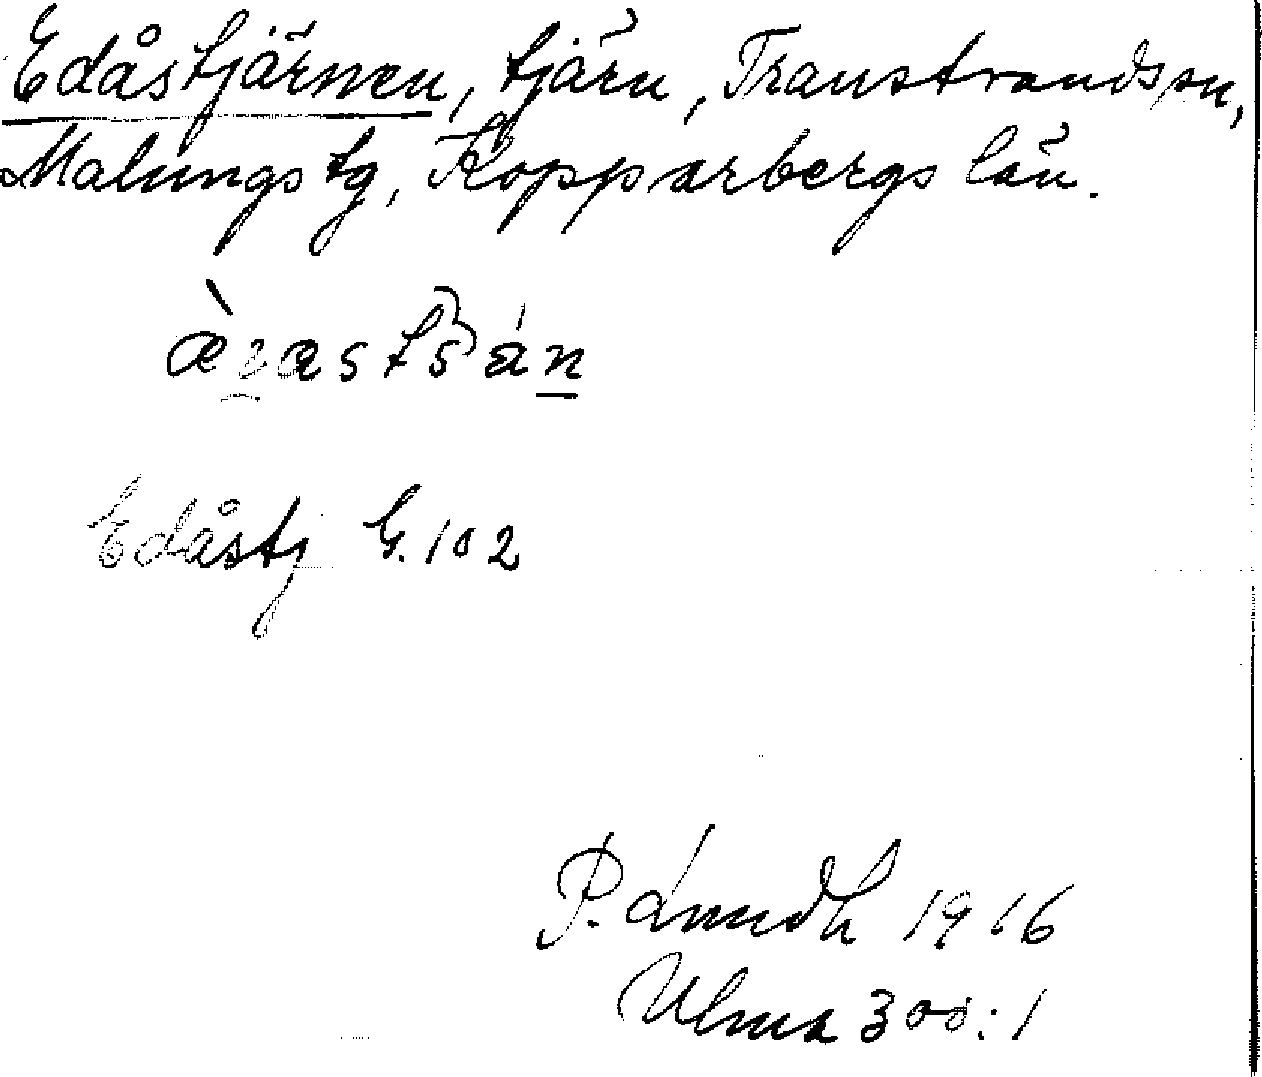 Edåstjärnen, tjärn, Transtrands sn,
Malungs tg, Kopparbergs län.
Edåstj G. 102
P. Lundh 1916
Ulma 300:1